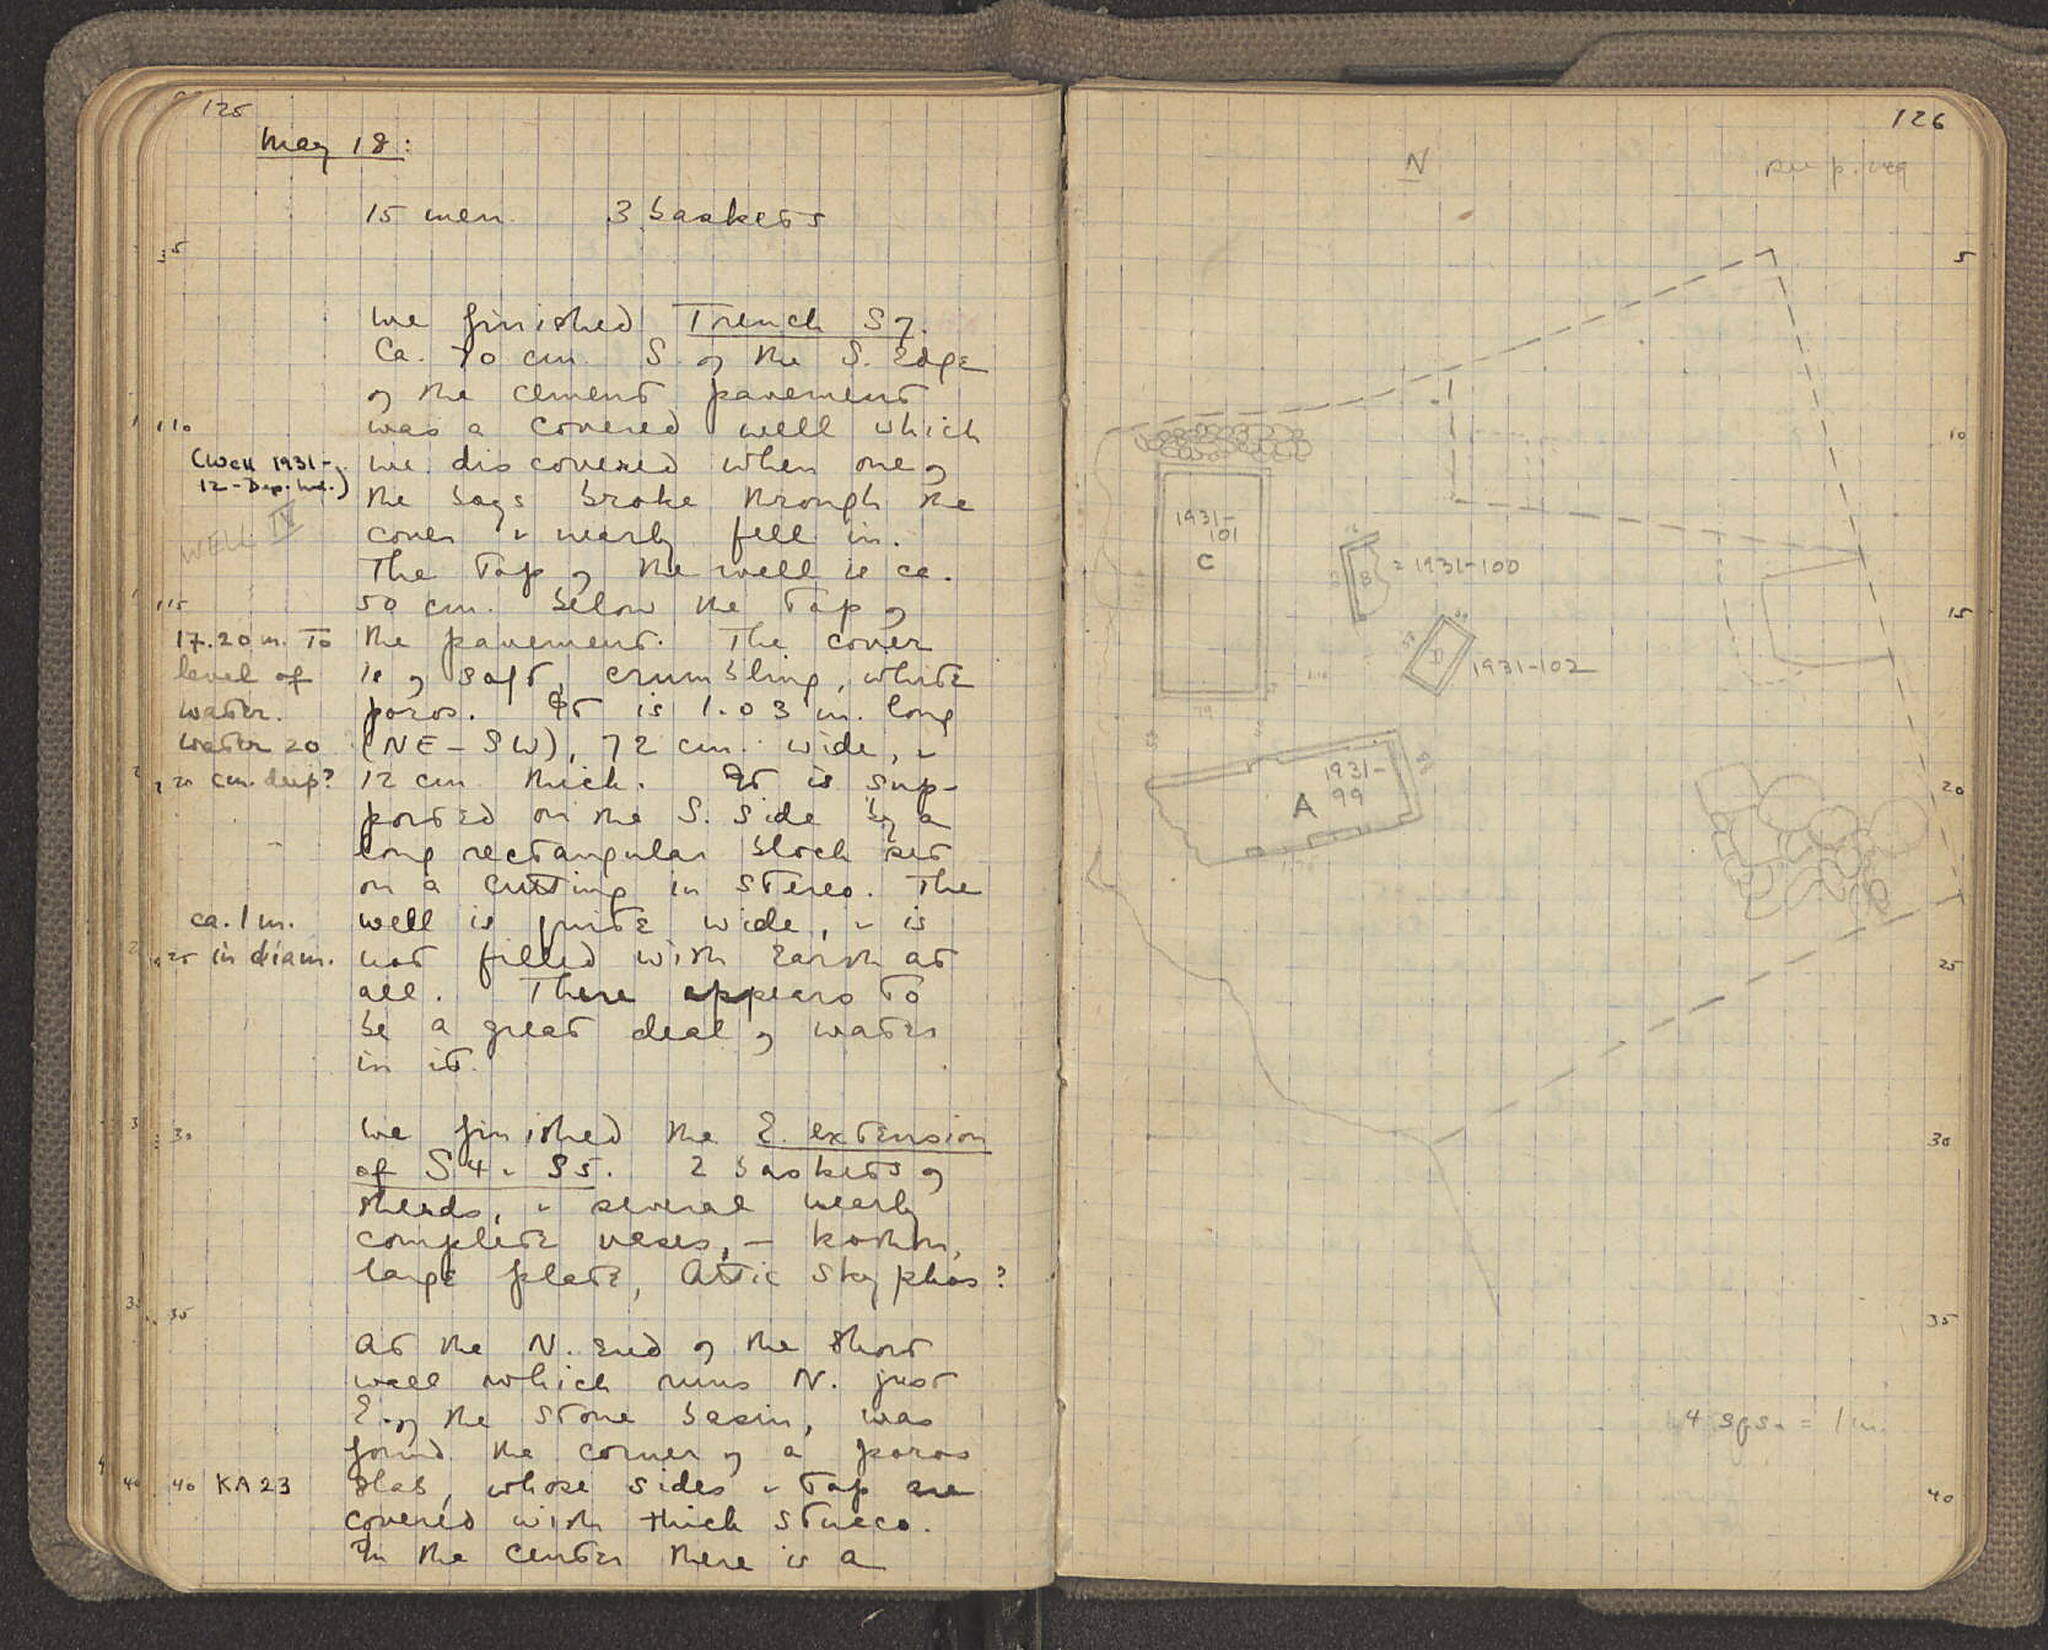 125
May 18:
15 men. 3 baskets
5
We finished Trench S7.
Ca. 70 cm. S. of the S. Edge
of the cement pavement
10 was a covered well which
(Well 1931- we discovered when one of
12-Dep. ) the boys broke through the
WELL IV cover & nearly fell in.
The top of the well is ca.
15 50 cm. below the top of
17.20 m. To the pavement. The cover
level of is of soft, crumbling, white
water. poros. It is 1.03 m. long
water 20 (NE-SW), 72 cm. wide, &
20 cm. deep? 12 cm thick. It is sup-
ported on the S. side by a
long rectangular block set
on a cutting in stereo. The
ca. 1 m. well is quite wide, & is
25 in diam. not filled with Earth at
all. There appears to
be a great deal of water
in it.
30 We finished the E. extension
of S4 & S5. 2 baskets of
sherds, & several nearly
complete vases, – kothon,
large plate, Attic skyphos?
35
At the N. End of the short
wall which runs N. just
E. of the stone basin, was
found the corner of a poros
40 KA23 slab, whose sides & top are
covered with thick stucco.
In the center there is a
126
N
see p.
5
10
1931-
101
C
B = 1931-100
15
D 1931-102
79
1931-
99
A
20
25
30
35
4 sqs. = 1 m.
40